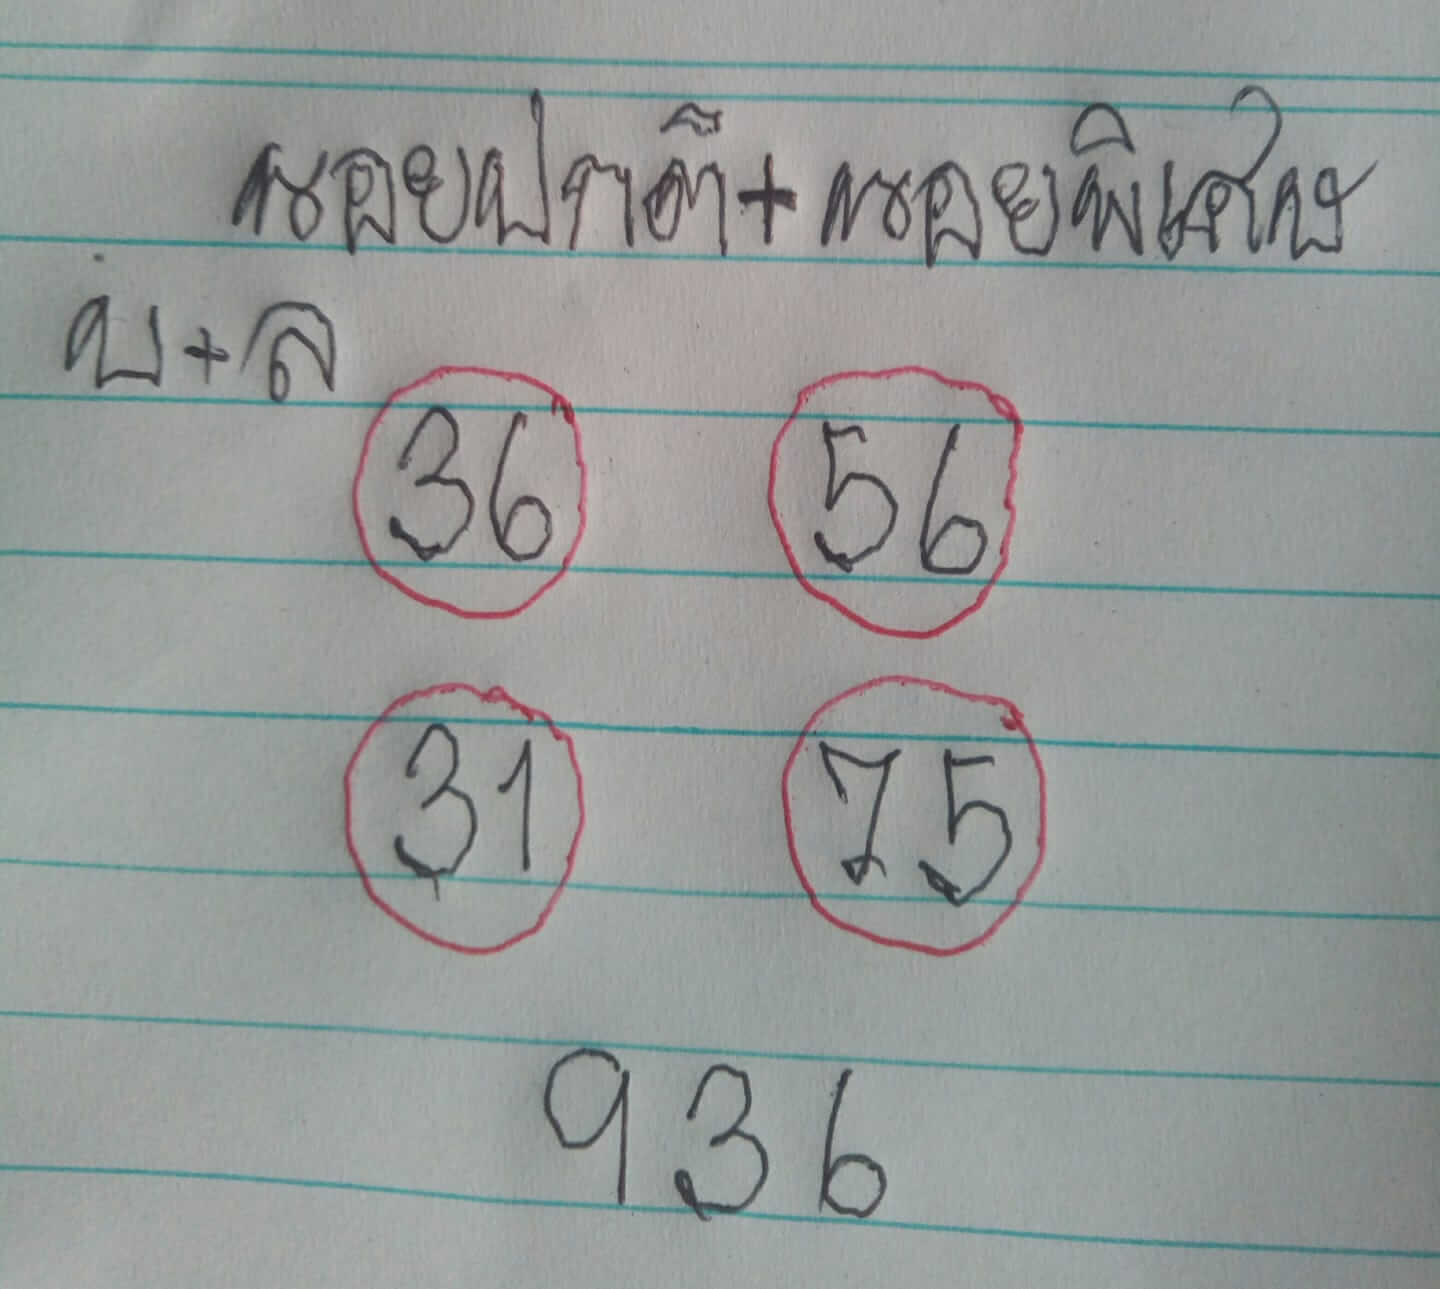 หฮอยปกติ+หฮอยพิเศษ
บ+ล
36 56
31 75
936